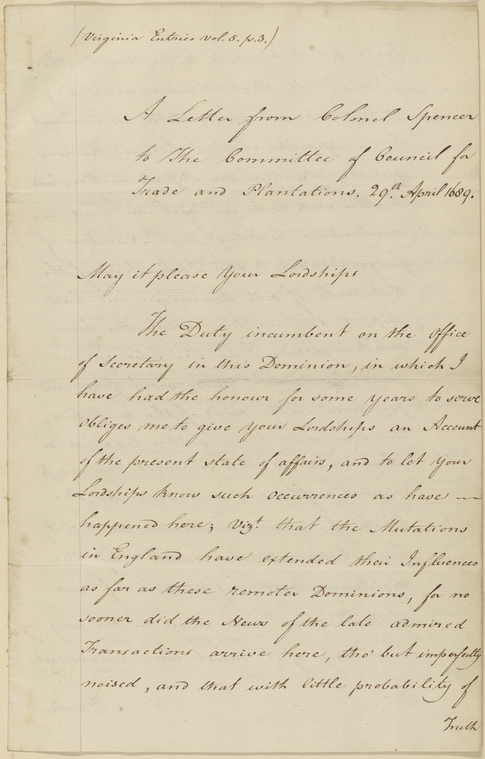 (Virginia Entries vol. 5. p. 3.)
A Letter from Colonel Spencer
to The Committee of Council for
Trade and Plantations. 29th. April 1689.
May it please Your Lordships
The Duty incumbent on the Office
of Secretary in this Dominion, in which I
have had the honour for some years to serve
obliges me to give your Lordships an Account
of the present state of affairs, and to let your
Lordships know such occurrences as have —
happened here; Vizt. that the Mutations
in England have extended their Influences
as far as these remoter Dominions, for no
sooner did the News of the late admired
Transactions arrive here, tho' but imperfectly
noised, and that with little probability of
Truth